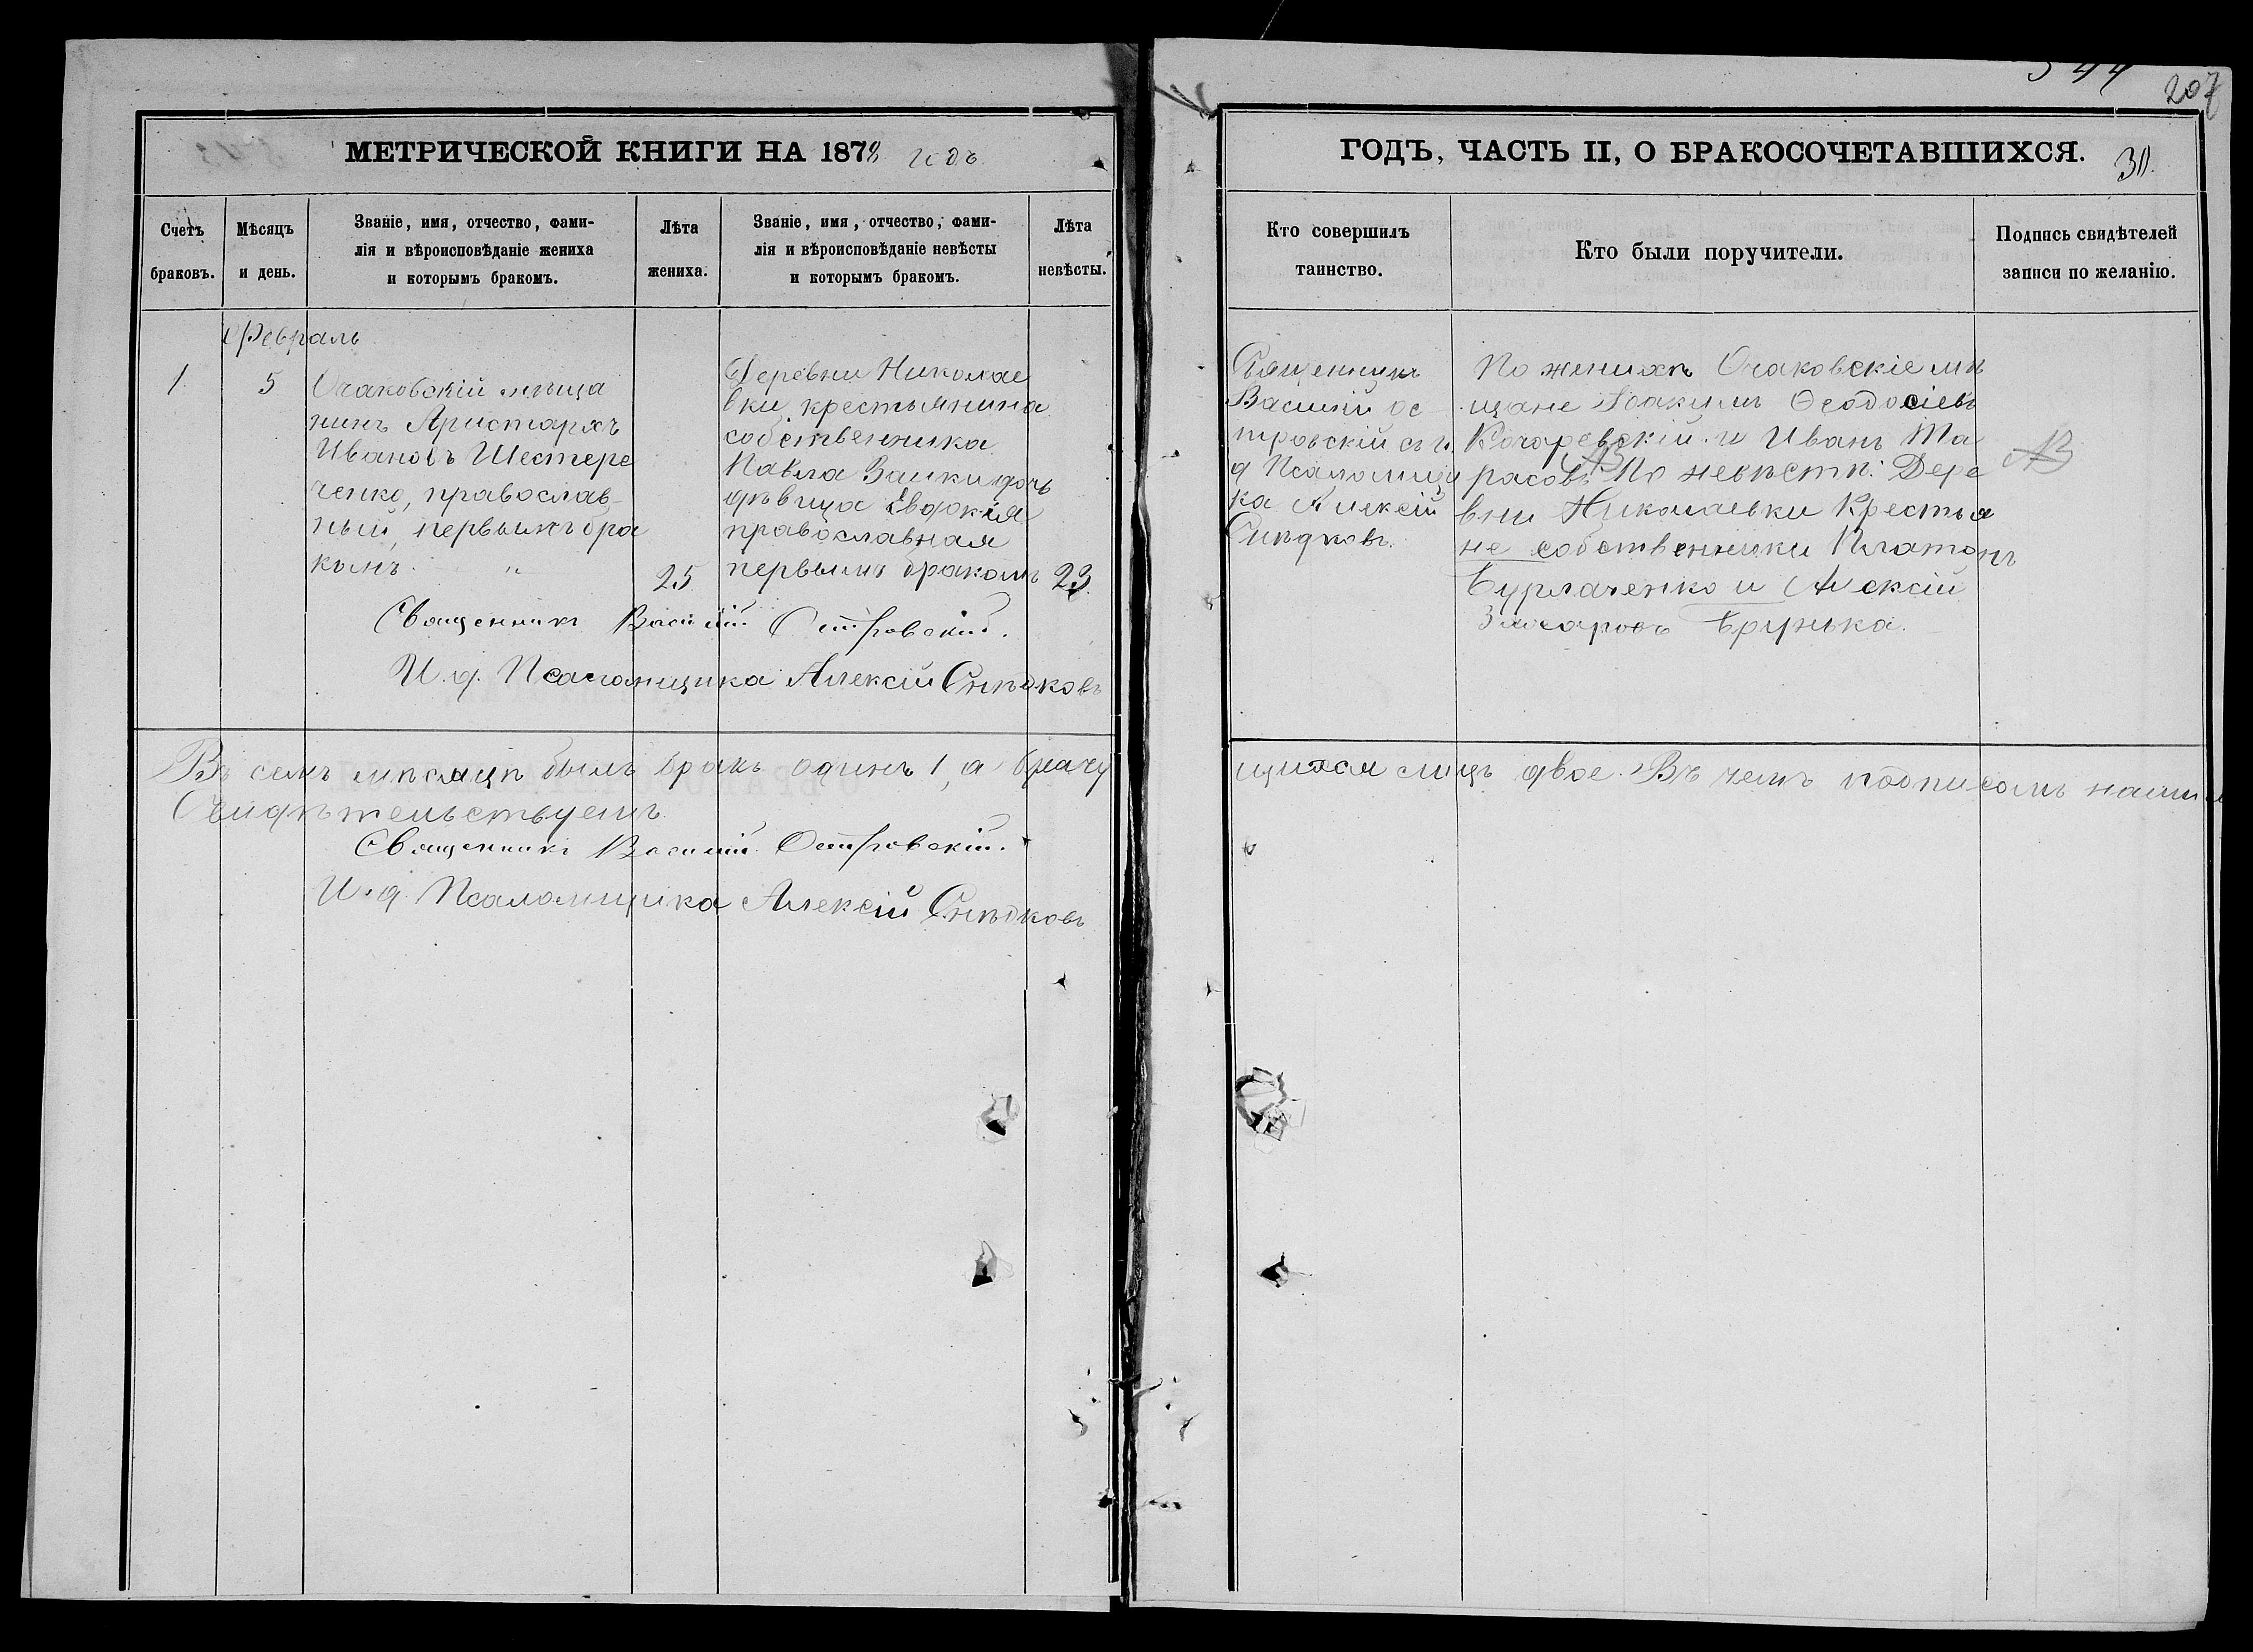 207
МЕТРИЧЕСКОЙ КНИГИ НА 1878 годъ
ГОДЪ, ЧАСТЬ II, О БРАКОСОЧЕТАВШИХСЯ.
30.
Счетъ
браковъ.
Мѣсяцъ
и день.
Званіе, имя, отчество, фами-
лія и вѣроисповѣданіе жениха
и которымъ бракомъ.
Лѣта
жениха.
Званіе, имя, отчество, фами-
лія и вѣроисповѣданіе невѣсты
и которымъ бракомъ.
Лѣта
невѣсты.
Кто совершилъ
таинство.
Кто были поручители.
Подпись свидѣтелей
записи по желанію.
Февраль
1
5
Очаковскій мѣща
нинъ Аристархъ
Ивановъ Шестере
ченко, православ-
ный, первымъ бра
комъ. "
25
Деревни Николае
вки, крестьянина
собственника
Павла Заики дочь
дѣвица Евдокія
православная
первымъ бракомъ
23.
Священникъ
Василій Ос
тровскій съ и.
д Псаломщи
ка Алексій
Снѣдковъ.
По женихѣ Очаковскіе мѣ
щане Іоакимъ Ѳеодосіевъ
Кочаревскій и Иванъ Та
расовъ По невѣстѣ: Дере
вни Николаевки Крестья
не собственники Платонъ
Бурлаченко и Алексій
Брунька.
Священникъ Василій Островскій.
И. д. Псаломщика Алексій Снѣдковъ
Въ семъ мѣсяцѣ былъ бракъ одинъ 1, а брачу
щихся лицъ двое. Въ чемъ подписомъ нашимъ
Свидѣтельствуемъ.
Священникъ Василій Островскій.
И. д. Псаломщика Алексій Снѣдковъ